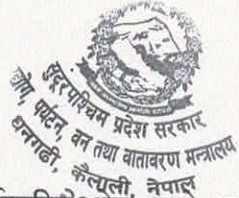 सुदूरपश्चिम प्रदेश सरकार
उद्योग, पर्यटन, वन तथा वातावरण मन्त्रालय
धनगढी, कैलाली, नेपाल